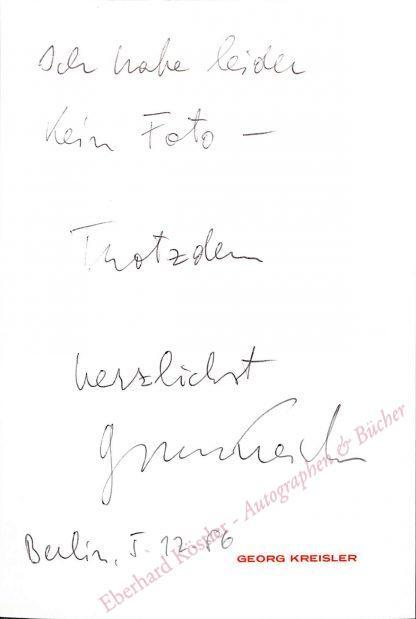 Ich habe leider
kein Foto —
Trotzdem
herzlichst
Georg Kreisler
Berlin, 5.12.86
GEORG KREISLER
Eberhard Köstler - Autographen & Bücher